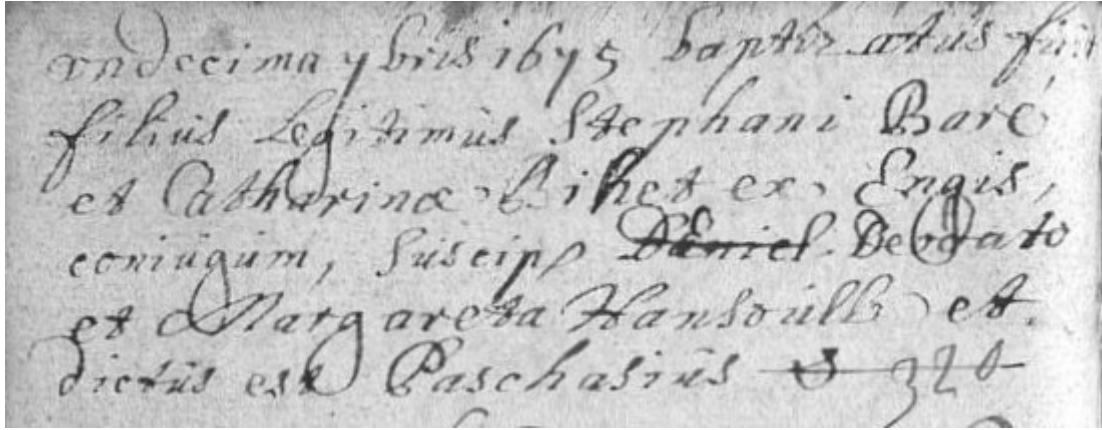 vndecima 7bris 1675 baptizatus fuit
filius Legitimus Stephani Baré
et Catharinæ Bihet ex Engis,
coniugum, suscip Daniel Deodato
et Margareta Hansoulle et
dictus est Paschasius